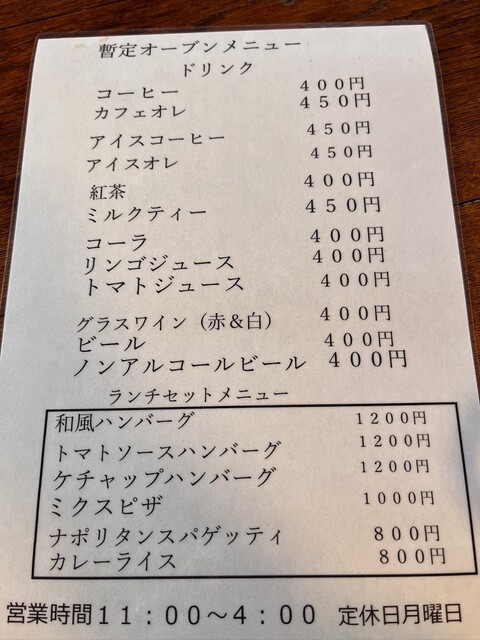 暫定オープンメニュー
ドリンク
コーヒー 400円
カフェオレ 450円
アイスコーヒー 450円
アイスオレ 450円
紅茶 400円
ミルクティー 450円
コーラ 400円
リンゴジュース 400円
トマトジュース 400円
グラスワイン（赤＆白） 400円
ビール 400円
ノンアルコールビール 400円
ランチセットメニュー
和風ハンバーグ 1200円
トマトソースハンバーグ 1200円
ケチャップハンバーグ 1200円
ミクスピザ 1000円
ナポリタンスパゲッティ 800円
カレーライス 800円
営業時間11：00～4：00 定休日月曜日